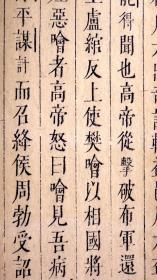 記得聞也高帝從擊破布軍還
上盧綰反上使樊噲以相國將
惡噲者高帝怒曰噲見吾病
平謀計而召絳侯周勃受詔